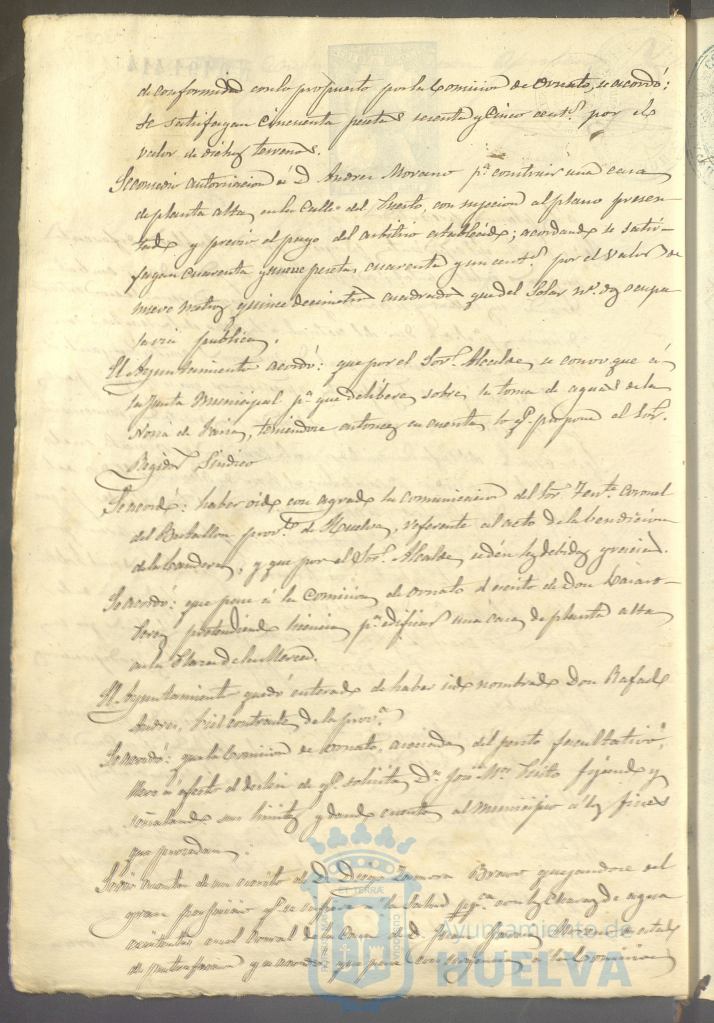 de conformidad con lo propuesto por la Comision de Ornato, se acordó:
se satisfagan cincuenta pesetas sesenta y cinco centˢ por el
valor de dichos terrenos.
Se concedió autorizacion á D. Andres Morano pᵃ construir una casa
de planta alta en la Calle del Puerto, con sujecion al plano presen-
tado y previo el pago del arbitrio establecido; acordando se satis-
fagan cuarenta y nueve pesetas cuarenta y un centˢ por el valor de
nueve metros y quince decimetros cuadrados que del Solar nº dos ocupa
la via publica.
El Ayuntamiento acordó: que por el Sorˢ Alcalde se convoque á
la Junta Municipal pᵃ que delibere sobre la toma de aguas de la
Noria de, teniendose entonces en cuenta lo qᵉ propone el Sorˢ
Regidor Sindico
Se acordó: haber oido con agrado la comunicacion del Sor Tentᵉ Coronel
del Batallon provˡ de Huelva, referente al acto de la bendicion
de la bandera, y que por el Sorˢ Alcalde se den las debidas gracias.
Se acordó: que pase á la Comision de ornato el escrito de Don Lázaro
Perez pretendiendo licencia pᵃ edificar una casa de planta alta
en la Plaza de la Merced.
El Ayuntamiento quedó enterado de haber sido nombrado Don Rafael
Andres, fiel contraste de la provᵃ
Se acordó: que la Comision de Ornato, asociada del perito facultativo,
lleve á efecto el deslinde qᵉ solicita Dⁿ José Mᵃ, fijando y
señalando sus limites y dando cuenta al municipio á los fines
que procedan.
Se dió cuenta de un escrito de D. Diego Zamora Bravo quejandose del
gran perjuicio qᵉ se infiere á la Salud pᶜᵃ con las Charcas de agua
existentes en el Corral de la Casa de D. en estado
de putrefaccion y se acordó, que pase con urgencia á la Comision
ET TERRÆ
CUSTODIA
Ayuntamiento de
HUELVA